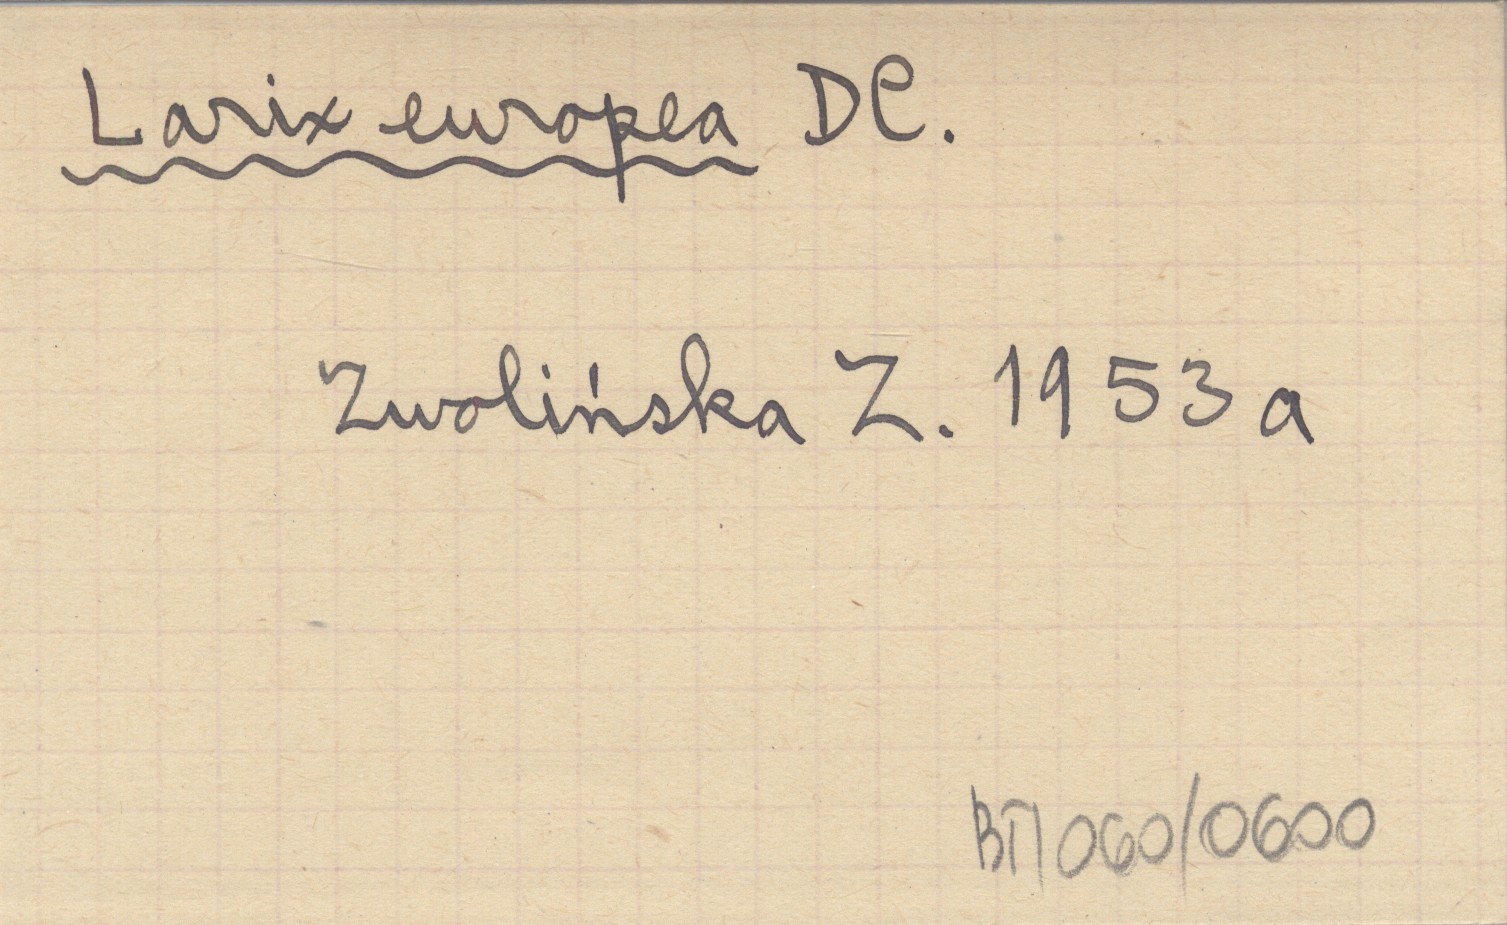 Larix europea DC.
Zwolińska Z. 1953 a
BTI 060/0600